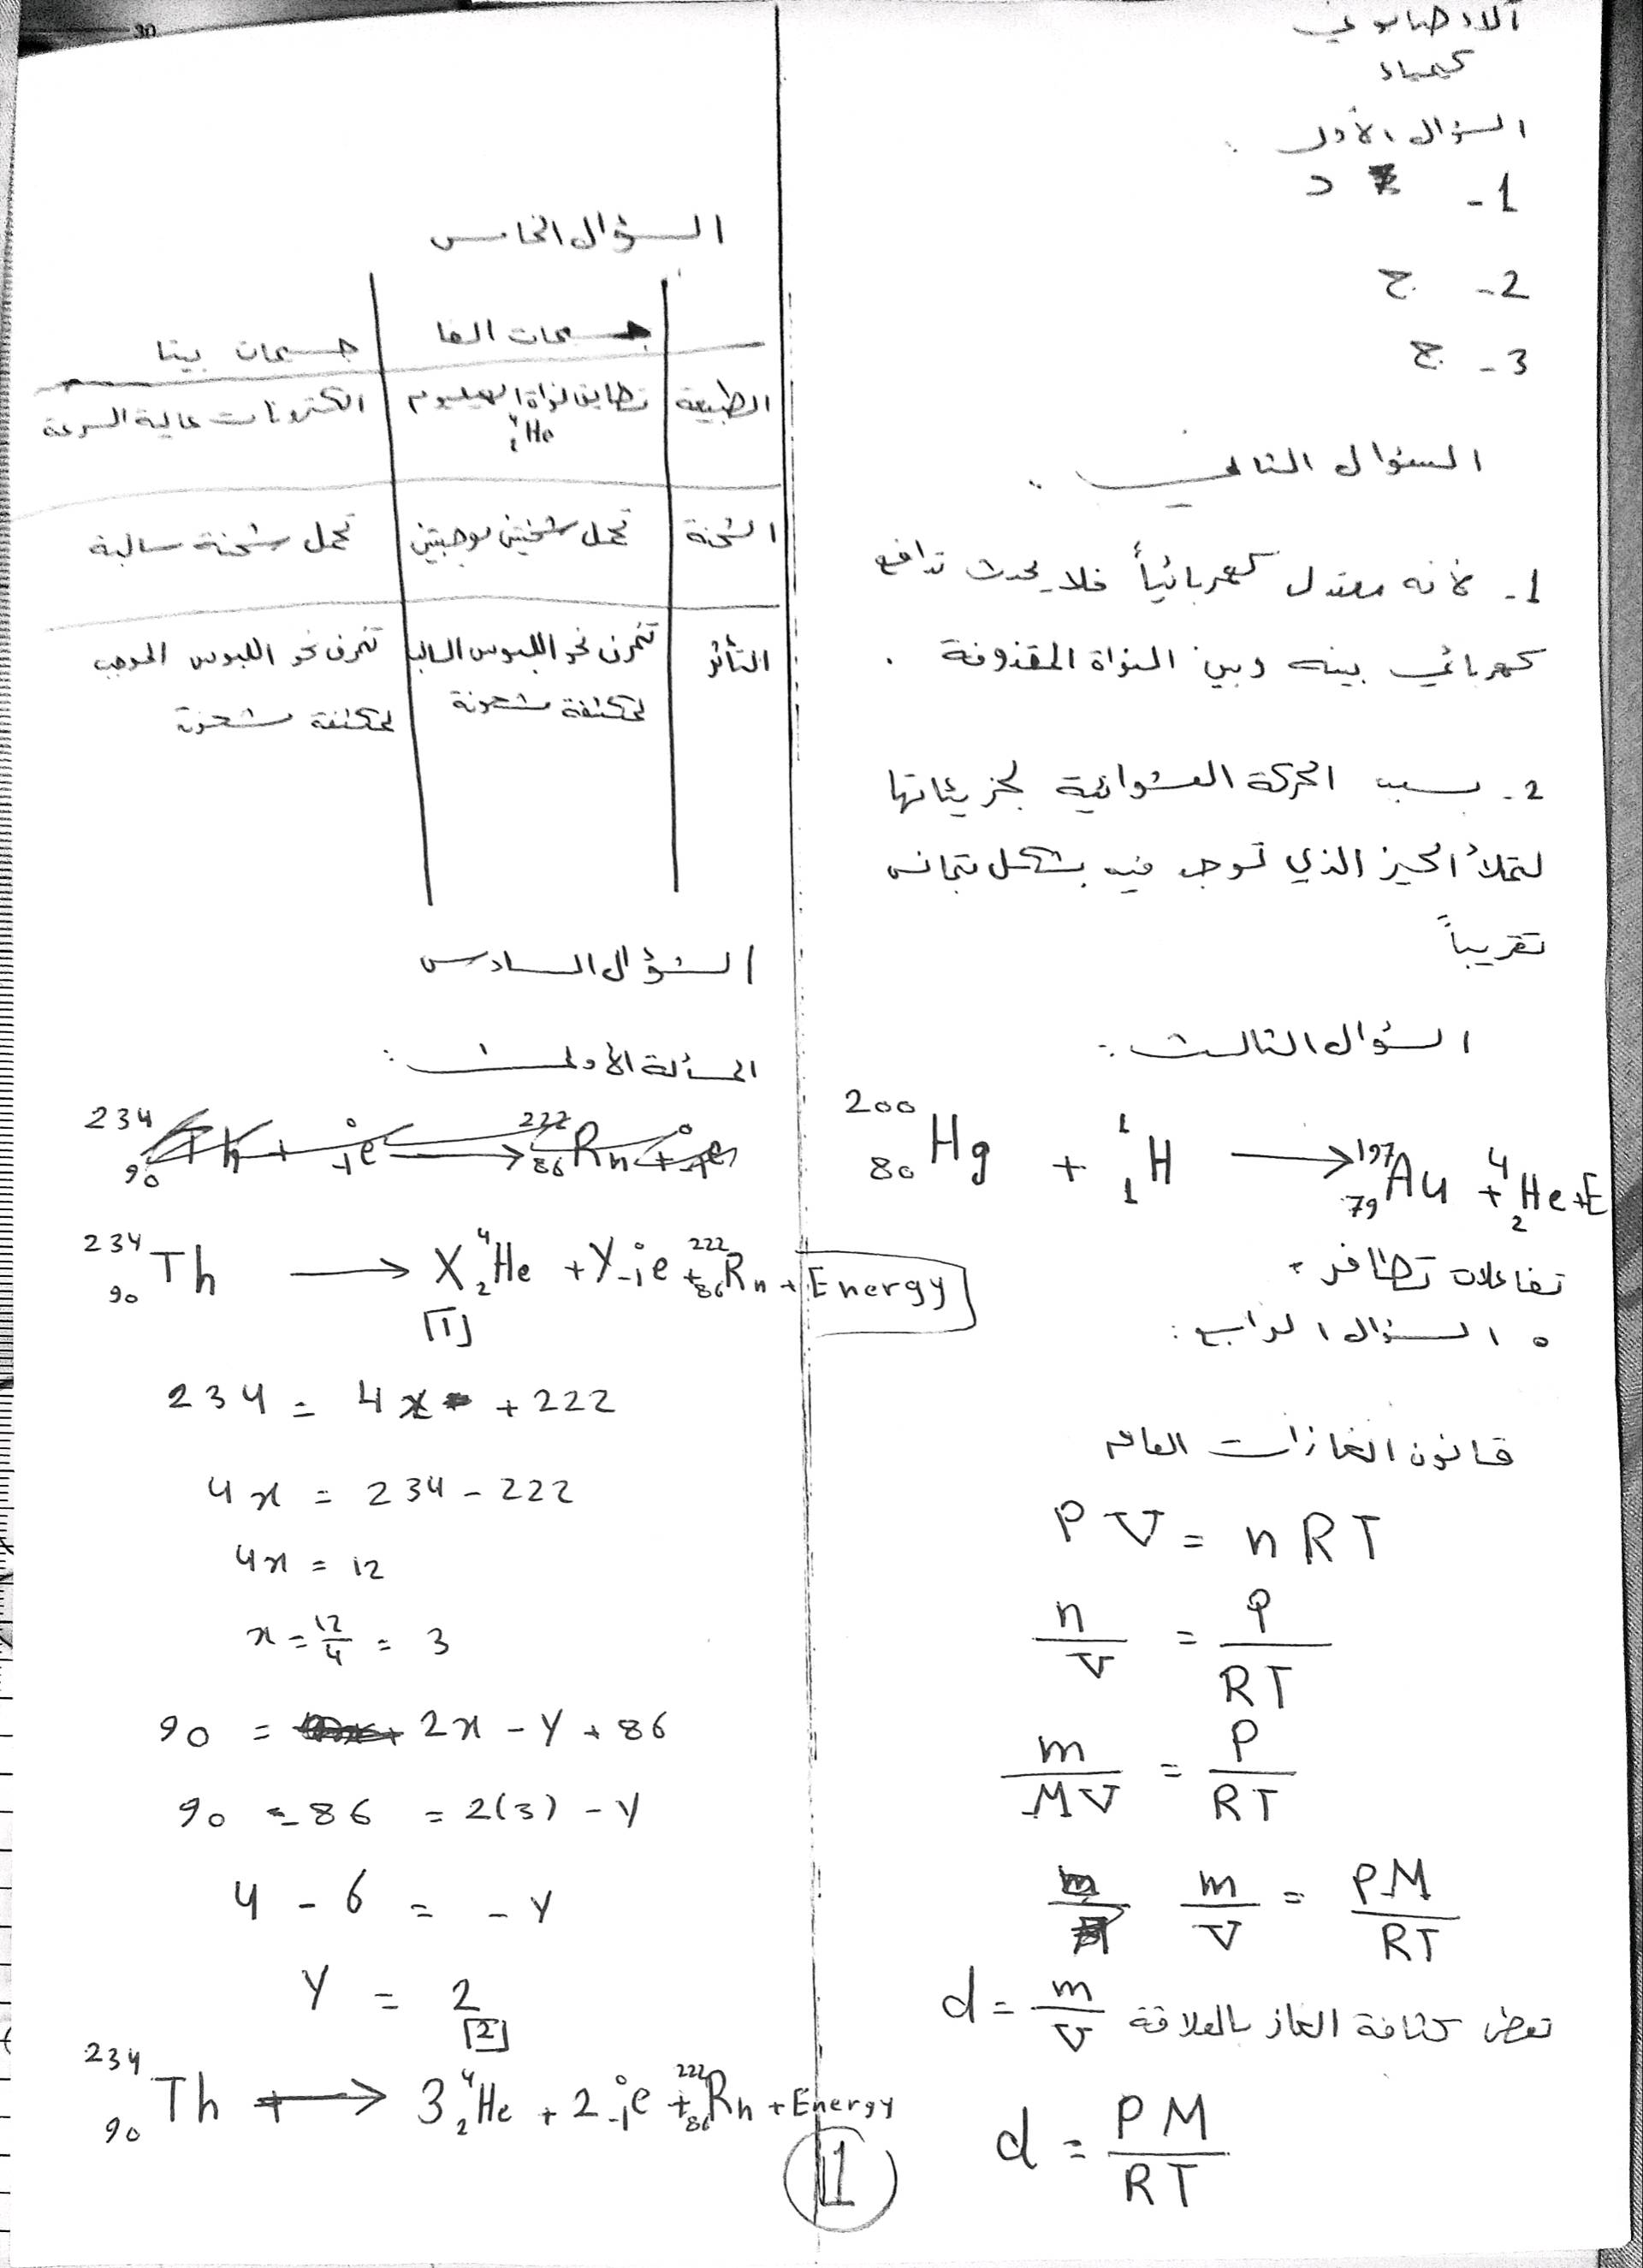 كيمياء
السؤال الأول :
1- د
2- ج
3- ج
السؤال الثاني :
1- لأنه معتدل كهربائياً فلا يحدث تدافع
كهربائي بينه وبين النواة المقذوفة .
2- بسبب الحركة العشوائية لجزيئاتها
لتملأ الحيز الذي توجد فيه بشكل متجانس
تقريباً
السؤال الثالث :
²⁰⁰₈₀Hg + ¹₁H → ¹⁹⁷₇₉Au + ⁴₂He + E
تفاعلات تطافر .
السؤال الرابع :
قانون الغازات العام
PV = nRT
n/V = P/RT
m/MV = P/RT
m/V = PM/RT
تعطى كثافة الغاز بالعلاقة d = m/V
d = PM/RT
السؤال الخامس
جسيمات ألفا جسيمات بيتا
الطبيعة تطابق نواة الهيليوم ⁴₂He الكترونات عالية السرعة
الشحنة تحمل شحنتين موجبتين تحمل شحنة سالبة
التأثر تنحرف نحو اللبوس السالب لمكثفة مشحونة تنحرف نحو اللبوس الموجب لمكثفة مشحونة
السؤال السادس
المسألة الأولى :
²³⁴₉₀Th + ⁰₋₁e → ²²²₈₆Rn + ⁰₋₁e
²³⁴₉₀Th → X ⁴₂He + Y ⁰₋₁e + ²²²₈₆Rn + Energy
[1]
234 = 4x + 222
4x = 234 - 222
4x = 12
x = 12/4 = 3
90 = 2x - y + 86
90 - 86 = 2(3) - y
4 - 6 = - y
y = 2
[2]
²³⁴₉₀Th → 3 ⁴₂He + 2 ⁰₋₁e + ²²²₈₆Rn + Energy
1